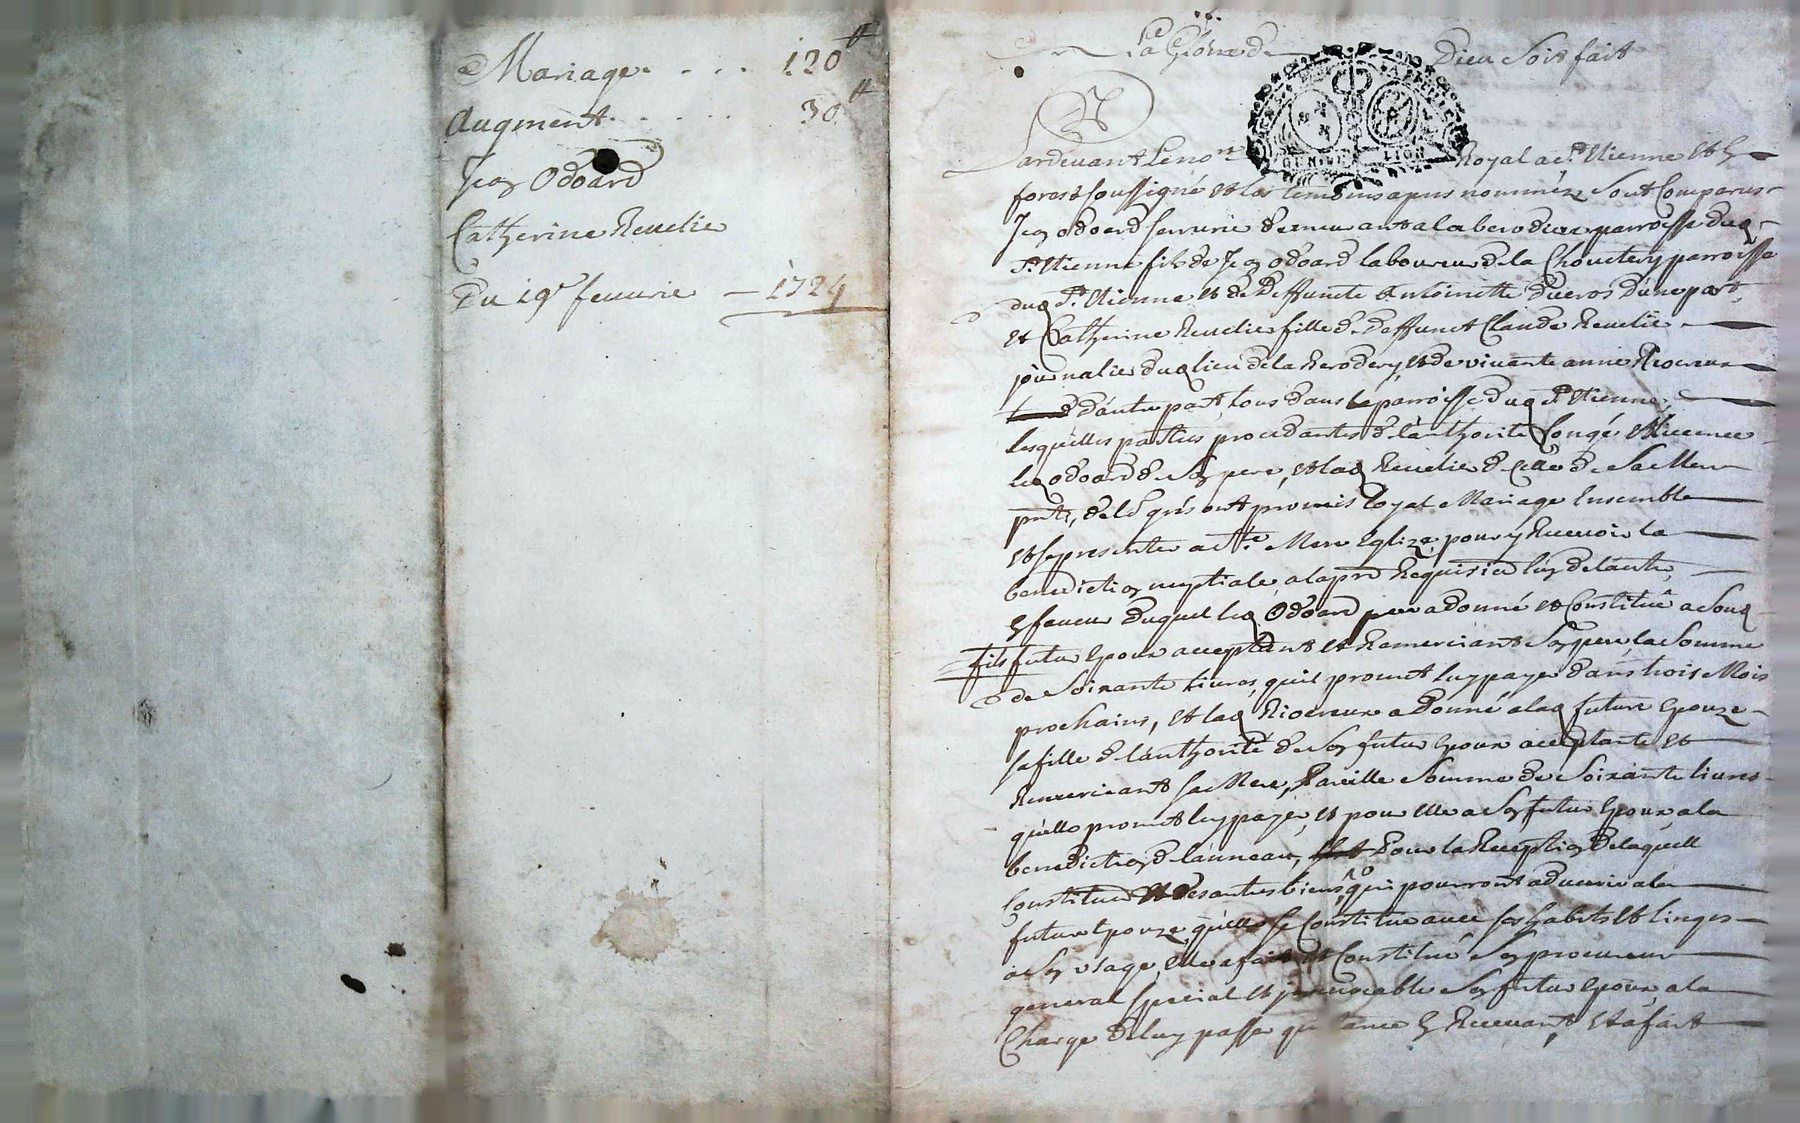 Mariage . . . 120ᵗᵗ
Augment . . . . . 30ᵗᵗ
Jean Odoard
Catherine Reuelier
Du 19ᵉ feuurier — 1724
La Gloire de Dieu Soit fait
Pardeuant Le no.re Royal a S.t Etienne et en
forest soussigné et les temoins apres nommés Sont Comparus
Jean odoard serrurier demeurant a la berodiere parroisse dud
S.t Etienne fils de Jean odoard laboureur de la parroisse
dud S.t Etienne et de Deffuncte Antoinette d'une part,
et Catherine Reuelier fille de Deffunct Claude Reuelier
journalier dud lieu de la Berodery, et de viuante anne Riocreux
d'autre part, tous dans la parroisse dud S.t Etienne,
Lesquelles parties procedantes de l'authorité Congé et licence
led odoard de son pere, et lad Reuelier de celle de sa Mere
pnts, de leur grés ont promis loyal Mariage Ensemble
et se presenter a S.te Mere Eglize pour y Receuoir la
benediction nuptiale, a la pre Requisition l'un de l'autre,
En faueur duquel led Odoard pere a donné et Constitué a Sond
fils futur Epoux acceptant et Remerciant Son pere, la Somme
de Soixante Liures, quil promet luy payer dans trois Mois
prochains, et lad Riocreux a Donné a lad future Epouze
sa fille de l'authorité de Son futur Epoux acceptante et
Remerciant sa Mere, Pareille Somme de Soixante liures
qu'elle promet luy payer, et pour elle a Son futur Epoux a la
benediction de l'anneau, Pour la Reception de laquelle
Constitution et des autres biens qui pourront aduenir a la
future Epouze, qu'elle se Constitue auec ses habits et linges
a Son vsage, elle a fait et Constitué Son procureur
general special et jrreuocable Son futur Epoux, a la
Charge de luy passer quittance En Receuant, et a fait